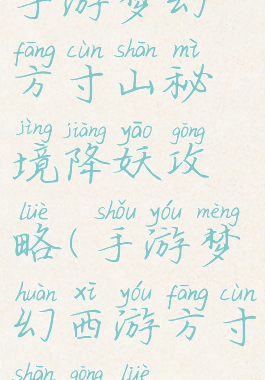 手游梦幻
fāng cùn shān mì
方寸山秘
jìng jiàng yāo gōng
境降妖攻
lüè shǒu yóu mèng
略(手游梦
huàn xī yóu fāng cùn
幻西游方寸
shān gōng lüè